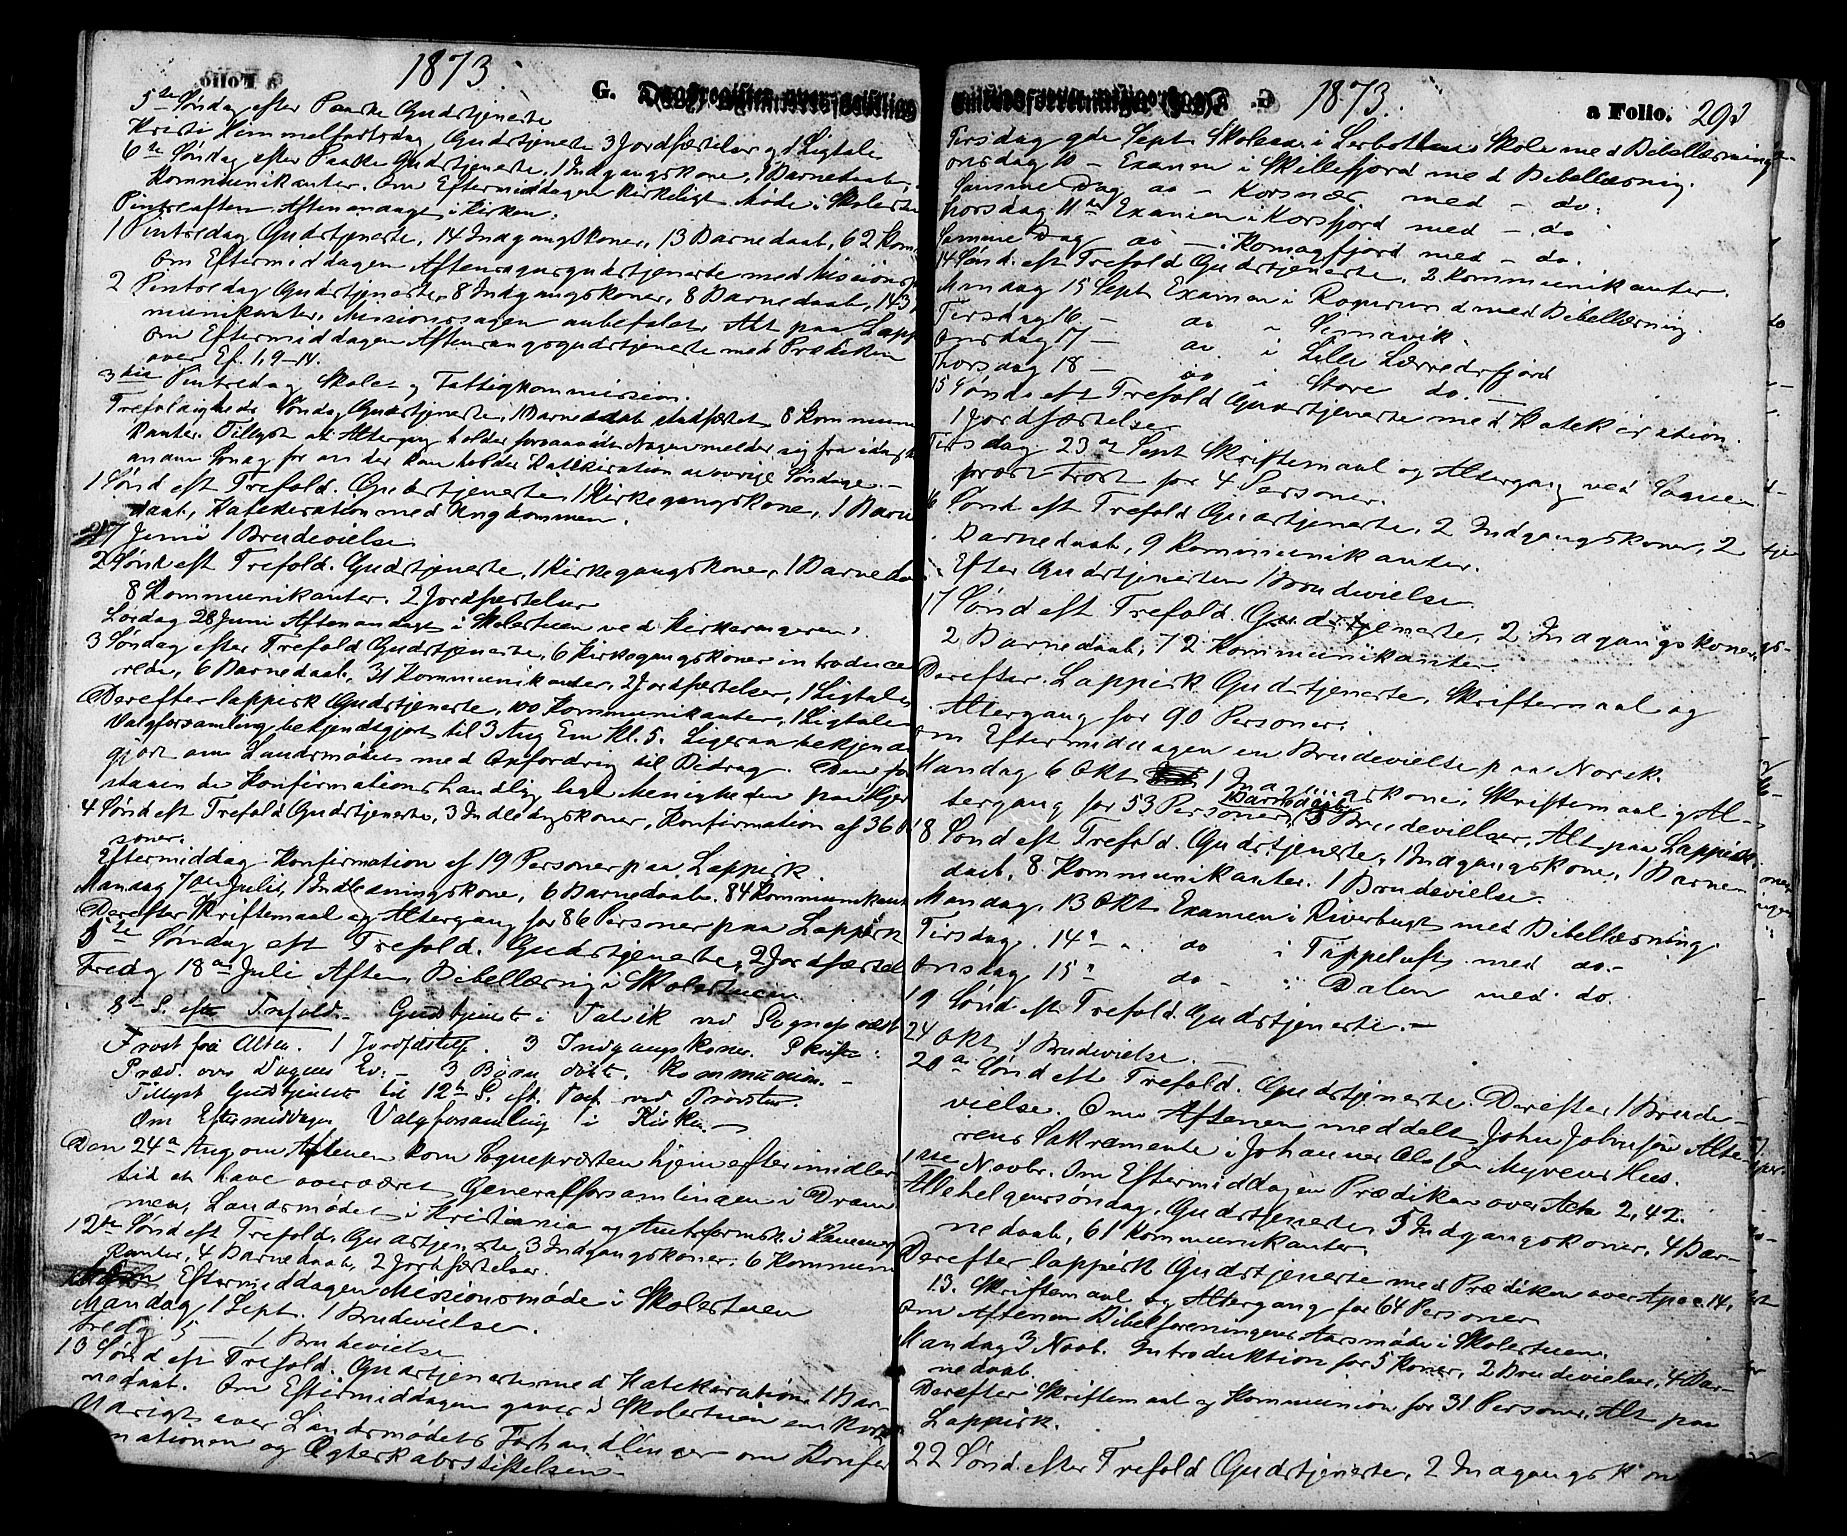 1873
G.
5te Søndag efter Paaske Gudstjeneste
Kristi Himmelfartsdag Gudstjeneste 3 Jordfæstelser og 1 Ligtale
6te Søndag efter Paaske Gudstjeneste, 1 Indgangskone, 1 Barnedaab,
Kommunikanter. Om Eftermiddagen kirkeligt Møde i Skolestuen
Pintseaften Aftenandagt i Kirken.
1 Pintsedag Gudstjeneste, 14 Indgangskoner, 13 Barnedaab, 62 Kom
Om Eftermiddagen Aftensangsgudstjeneste med Missions
2 Pintsedag Gudstjeneste, 8 Indgangskoner, 8 Barnedaab, 143
munikanter. Missionssagen anbefalet. Alt paa Lapp
Om Eftermiddagen Aftensangsgudstjeneste med Prædiken
over Ef. 1, 9-14.
3die Pintsedag Skole og Fattigkommission.
Trefoldigheds Søndag Gudstjeneste, 1 Barnedaab stadfæstet, 8 Kommuni
kanter. Tillyst at Altergang holdes forsaavidt Nogen melder sig fra idag
anden Søndag for at der kan holdes Katekisation de øvrige Søndage. -
1 Sønd eft Trefold. Gudstjeneste, 1 Kirkegangskone, 1 Barne
daab, Katekisation med Ungdommen.
27 Juni 1 Brudevielse
2 Sønd eft Trefold. Gudstjeneste, 1 Kirkegangskone, 1 Barneda
8 Kommunikanter. 2 Jordfæstelser
Lørdag 28 Juni Aftenandagt i Skolestuen ved Kirkesangeren.
3 Søndag efter Trefold Gudstjeneste, 6 Kirkegangskoner introduce
rede, 6 Barnedaab, 31 Kommunikanter, 2 Jordfæstelser, 1 Ligtale
Derefter lappisk Gudstjeneste, 100 Kommunikanter, 1 Ligtale
Valgforsamling bekjendtgjort til 3 Aug Em Kl. 5. Ligesaa bekjendt
gjort om Landsmødet med Opfordring til Bidrag. Den fore
staaende Konfirmationshandling lagt Menigheden paa Hjer
4 Sønd eft Trefold Gudstjeneste, 3 Indledningskoner, Konfirmation af 36 Per
soner.
Eftermiddag Konfirmation af 19 Personer paa Lappisk.
Mandag 7de Juli, 1 Indledningskone, 6 Barnedaab, 84 Kommunikant
Derefter Skriftemaal og Altergang for 86 Personer paa Lappisk
5te Søndag eft Trefold. Gudstjeneste, 2 Jordfæstel
Fredg 18de Juli Aften, Bibellæsning i Skolestuen
8de S. efter Trefold. - Gudstjeneste i Talvik ved Sognepræst
Frost fra Alten. 1 Jordfæstelse. 3 Indgangskoner. Skrifte:
Præd. over Dagens Ev: - 3 Børn døbt. Kommunion. -
Tillyst Gudstjeneste til 12te S. eft. Tref. ved Provsten.
Om Eftermiddagen Valgforsamling i Kirken -
Den 24de Aug om Aftenen kom Sognepræsten hjem efter imidler
tid at have overværet Generalforsamlingen i Dram
men, Landsmødet i Kristiania og
12te Sønd eft Trefold. Gudstjeneste, 3 Indgangskoner, 6 Kommuni
kanter, 4 Barnedaab, 2 Jordfæstelser.
Eftermiddagen Missionsmøde i Skolestuen
Mandag 1 Sept. 1 Brudevielse.
Fredg 5 - 1 Brudevielse
13 Sønd eft Trefold. Gudstjeneste med Katekisation, 1 Bar-
nedaab. Om Eftermiddagen gaves i Skolestuen en kort
Udsigt over Landsmødets Forhandlinger om Konfir
mationen og Ægteskabsstiftelsen. -
1873.
a Folio. 293
Tirsdag 9de Sept Skolexa: i Lerbotten Skole med Bibellæsning
Onsdag 10 - Examen i Skillefjord med Bibellæsning.
Samme Dag do - Korsnæs med - do:
Thorsdag 11te Examen i Korsfjord med - do
Samme Dag do - i Komagfjord med - do.
14 Sønd. eft Trefold Gudstjeneste, 2 Kommunikanter.
Mandag 15 Sept Examen i Rognsund med Bibellæsning.
Tirsdag 16 - do " Simavik.
Onsdag 17 - do i Lille Lerredsfjord
Thorsdag 18 - do i Store do. -
15 Sønd. eft Trefold Gudstjeneste med Katekisation.
1 Jordfæstelse
Tirsdag 23de Sept Skriftemaal og Altergang ved Sogne
præst Frost for 4 Personer.
16 Sønd. eft Trefold Gudstjeneste, 2 Indgangskoner, 2
Barnedaab, 9 Kommunikanter.
Efter Gudstjenesten 1 Brudevielse
17 Sønd eft Trefold. Gudstjeneste, 2 Indgangskoner,
2 Barnedaab, 12 Kommunikanter.
Derefter Lappisk Gudstjeneste, Skriftemaal og
Altergang for 90 Personer.
Om Eftermiddagen en Brudevielse paa Norsk.
Mandag 6 Okt 1 Indgangskone, Skriftemaal og Al-
tergang for 53 Personer, Barnedaab, 3 Brudevielser, Alt paa Lappisk.
18 Sønd eft Trefold. Gudstjeneste, 1 Indgangskone, 1 Barne-
daab, 8 Kommunikanter. 1 Brudevielse.
Mandag, 13 Okt Examen i Riverbugt med Bibellæsning.
Tirsdag. 14de " do i Tappeluft med do. -
Onsdag 15de do - i Dalen med do.
19 Sønd. eft Trefold. Gudstjeneste. -
24 Okt, 1 Brudevielse. -
20de Sønd eft Trefold. Gudstjeneste. Derefter 1 Brude-
vielse. Om Aftenen meddelt John Johnsøn Alte-
rens Sakramente i Johannes Olsen Myrens Hus.
1ste Novbr. Om Eftermiddagen Prædiken over Acta 2, 42.
Allehelgenssøndag, Gudstjeneste, 5 Indgangskoner, 4 Bar-
nedaab, 61 Kommunikanter.
Derefter lappisk Gudstjeneste med Prædiken over Apoc. 14,
13. Skriftemaal og Altergang for 64 Personer
Om Aftenen Bibelforeningens Aarsmøde i Skolestuen.
Mandag 3 Novb. Introduktion for 5 Koner, 2 Brudevielser, 4 Bar-
nedaab.
Derefter Skriftemaal og Kommunion for 31 Personer, Alt paa
Lappisk.
22 Sønd. efter Trefold Gudstjeneste, 2 Indgangskon